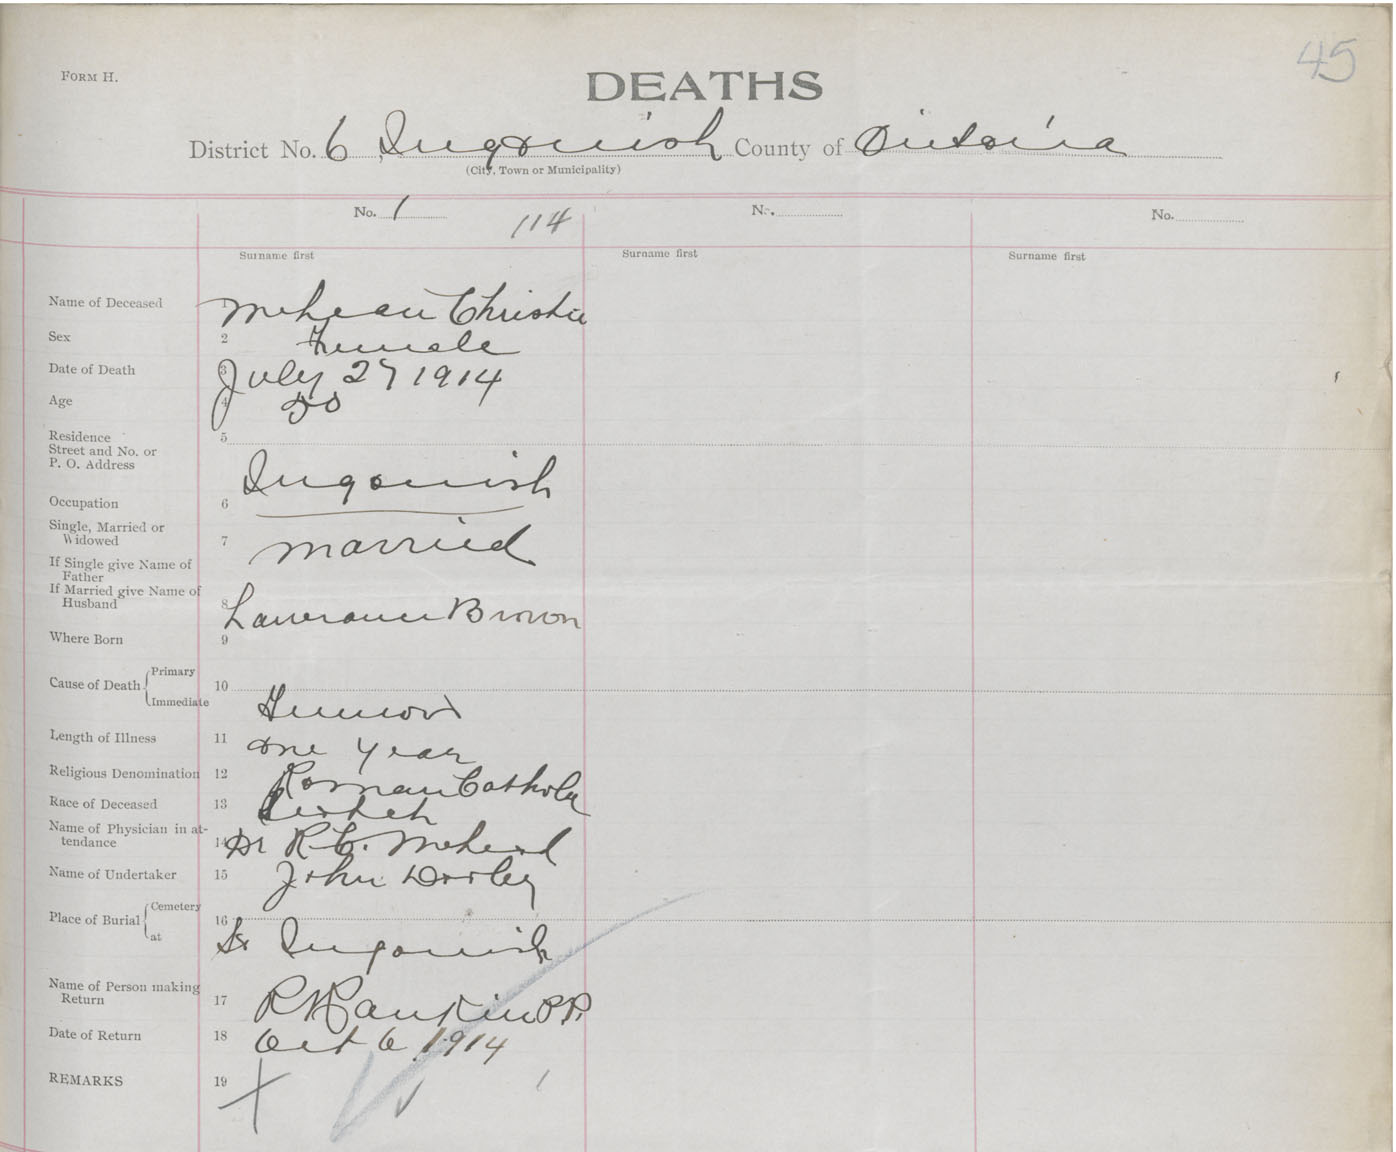 45
FORM H.
DEATHS
District No. 6 Ingonish County of Victoria
(City, Town or Municipality)
No. 1 114
No.
No.
Surname first
Surname first
Surname first
Name of Deceased 1 McLean Christie
Sex 2 Female
Date of Death 3 July 27 1914
Age 4 50
Residence 5
Street and No. or
P. O. Address
Ingonish
Occupation 6
Single, Married or
Widowed 7 married
If Single give Name of
Father
If Married give Name of
Husband 8 Lawrance Brown
Where Born 9
Cause of Death Primary 10
Immediate
Tumor
Length of Illness 11 one year
Religious Denomination 12 Roman Catholic
Race of Deceased 13
Name of Physician in at-
tendance 14 Dr R. C. McLeod
Name of Undertaker 15 John Dooley
Place of Burial Cemetery 16
at
Ingonish
Name of Person making
Return 17 R H Rankin P.P.
Date of Return 18 Oct 6 1914
REMARKS 19